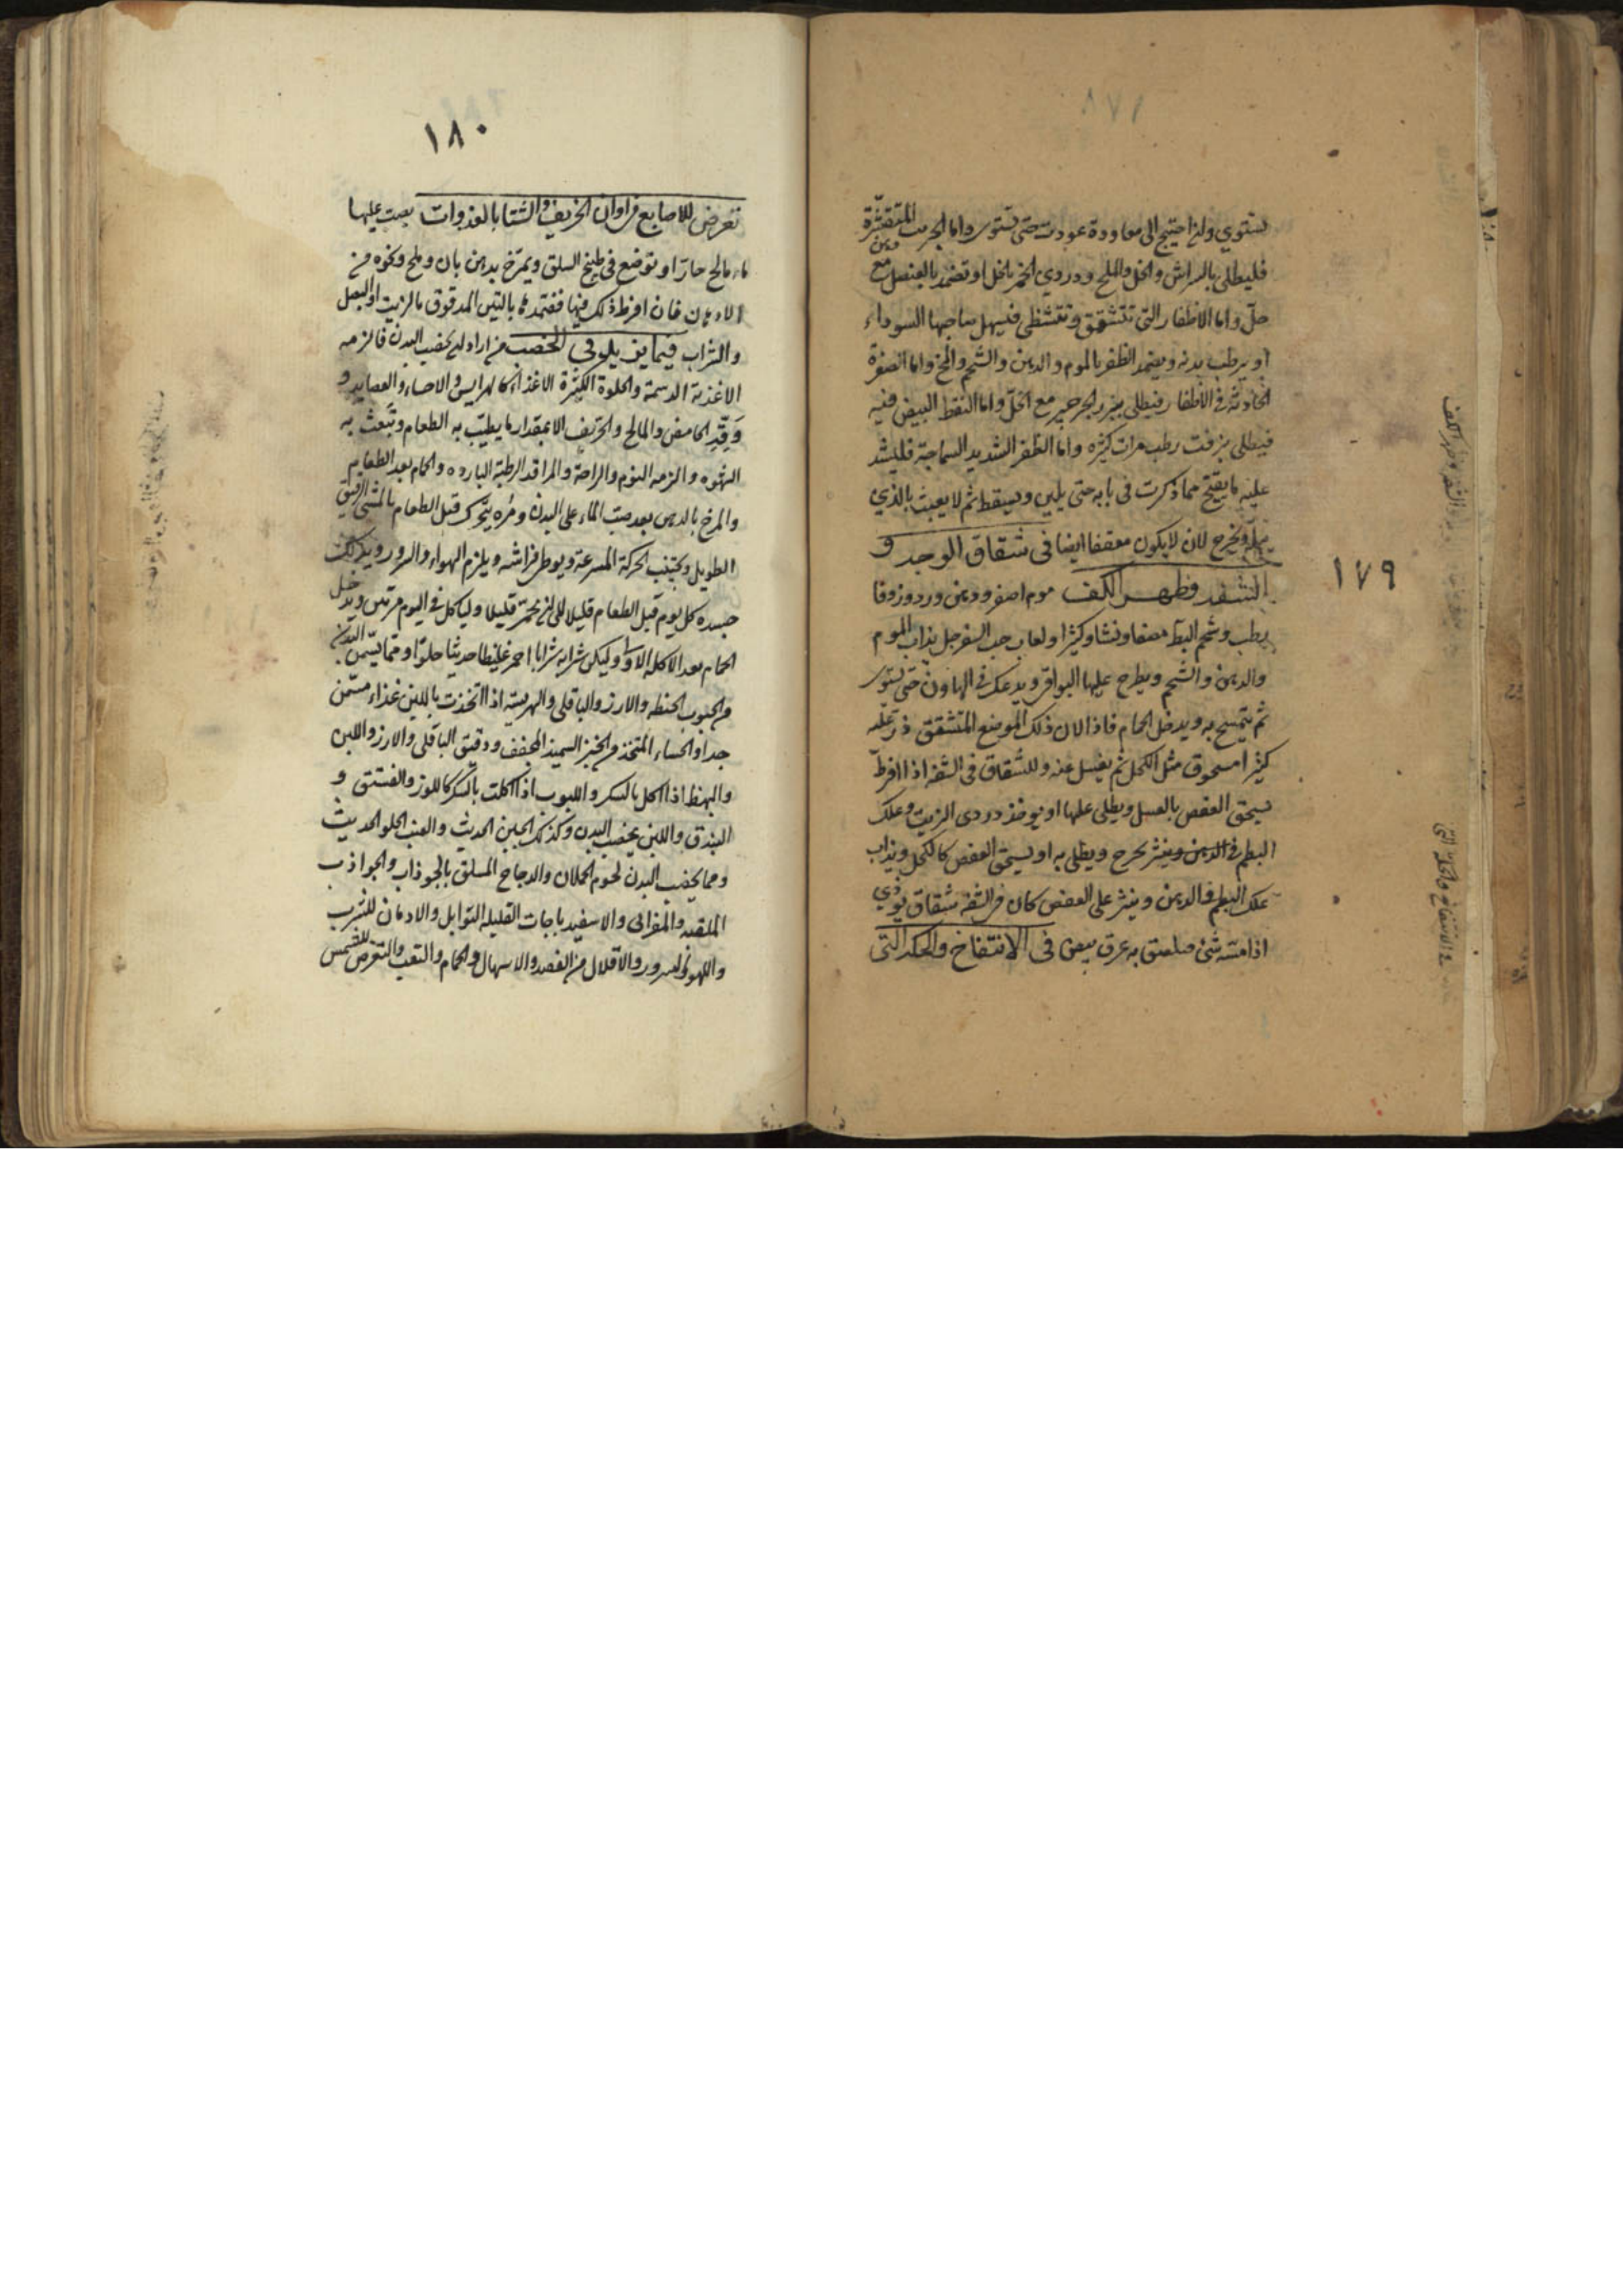 ١٧٩
يستوي وان احتيج الى معاودة عودت حتى تستوي واما الجربت المتقشرة
فليطلى بالسراش والخل والملح ودردي الخمر بالخل او تضمد بالعنصل مع دهن
حل واما الاظفار التي تتشقق وتتشظى فيسهل صاحبها السوداء
او يرطب بدنه ويضمد الظفر بالموم والدهن والشحم والمخ واما الصفرة
الحادثة في الاظفار فيطلى ببزر الجرجير مع الخل واما النقط البيض فيه
فيطلى بزفت رطب مرات كثيره واما الظفر الشديد السماجة فليشد
عليه ما يقيح مما ذكرت في بابه حتى يلين ويسقط ثم لا يعبث بالذي
يخرج لان لا يكون معقفا ايضا في شقاق الوجه و
الشفه وظهر الكف موم اصفر ودهن ورد وزوفا
رطب وشحم البط مصفا ونشا وكثيرا ولعاب حب السفرجل يذاب الموم
والدهن والشحم ويطرح عليها البواقي ويدعك في الهاون حتى يستوى
ثم يتمسح به ويدخل الحمام فاذا الان ذلك الموضع المتشقق ذر عليه
كثيرا مسحوق مثل الكحل ثم يغسل عنه وللشقاق في الشفه اذا افرط
يسحق العفص بالعسل ويطلى عليها او يوخذ دردى الزيت وعلك
البطم في الدهن وينثر بحرح ويطلى به او يسحق العفص كالكحل ويذاب
علك البطم في الدهن وينثر على العفص كان في الشفه شقاق يوذي
اذا مسه شئ صلصق به عرق بيض في الانتفاخ والحكه التي
١٨٠
تعرض للاصابع في اوان الخريف والشتا بالغدوات يصب عليها
ماء مالح حار او توضع في طبيخ السلق ويمرخ بدهن بان وملح ونحوه من
الادهان فان افرط ذلك فيها فضمدها بالتين المدقوق بالزيت او البصل
والشراب فيما يلو في الخصب من اراد ان يخصب البدن فالزمه
الاغذية الدسمة والحلوة الكثيرة الاغذاء كالهرايس والاحساء والعصايد و
وقه الحامض والمالح والحريف الا بمقدار ما يطيب به الطعام وتبعث به
الشهوه والزمه النوم والراحة والمراقد الرطبة البارده والحمام بعد الطعام
والمرخ بالدهن بعد صب الماء على البدن ومره يتحرك قبل الطعام بالمشي الرفيق
الطويل ويجتنب الحركة المسرعة ويوطى فراشه ويلزم الهواء والسرور ويدلك
جسده كل يوم قبل الطعام قليلا الى ان يحمر قليلا ولياكل في اليوم مرتين ويدخل
الحمام بعد الاكلة الاولى وليكن شرابه شرابا احمر غليظا حديثا حلوا ومما يسمن البدن
من الحبوب الحنطه والارز والباقلى والهريسة اذا اتخذت باللبن غذاء مسمن
جدا والحساء المتخذ من الخبز السميذ المجفف ودقيق الباقلى والارز واللبن
والبهط اذا اكل بالسكر واللبوب اذا اكلت بالسكر كاللوز والفستق و
البندق واللبن يخصب البدن وكذلك الجبن الحديث والعنب الحلو الحديث
ومما يخصب البدن لحوم الحملان والدجاج المسلق بالجوذاب والجواذب
الملقيه والمقرالى والاسفيدباجات القليله التوابل والادمان للشرب
واللهو والسرور والاقلال من الفصد والاسهال والحمام والتعب والتعرض للشمس
والشفه وظهر الكف
في الانتفاخ والحكة التي